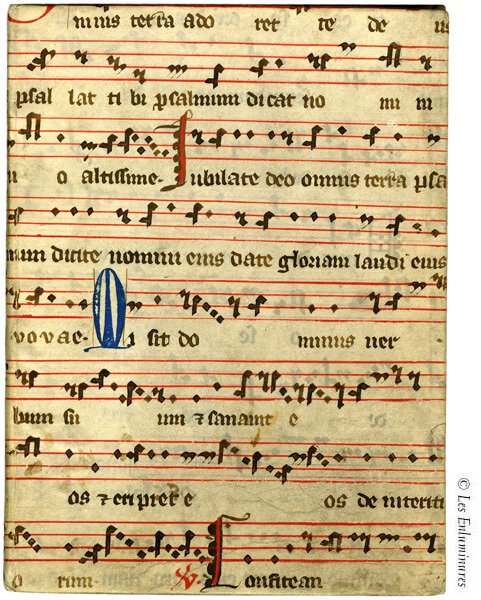 minis terra ado ret te de us
psal lat ti bi psalmum dicat no mi ni
o altissime. Iubilate deo omnis terra psa
mum dicite nomini eius date gloriam laudi eius
vovae. Misit do minus ver
bum su um ⁊ sanavit e
os ⁊ eripu e os de interiti
o rum. V. Confitean
© Les Enluminures